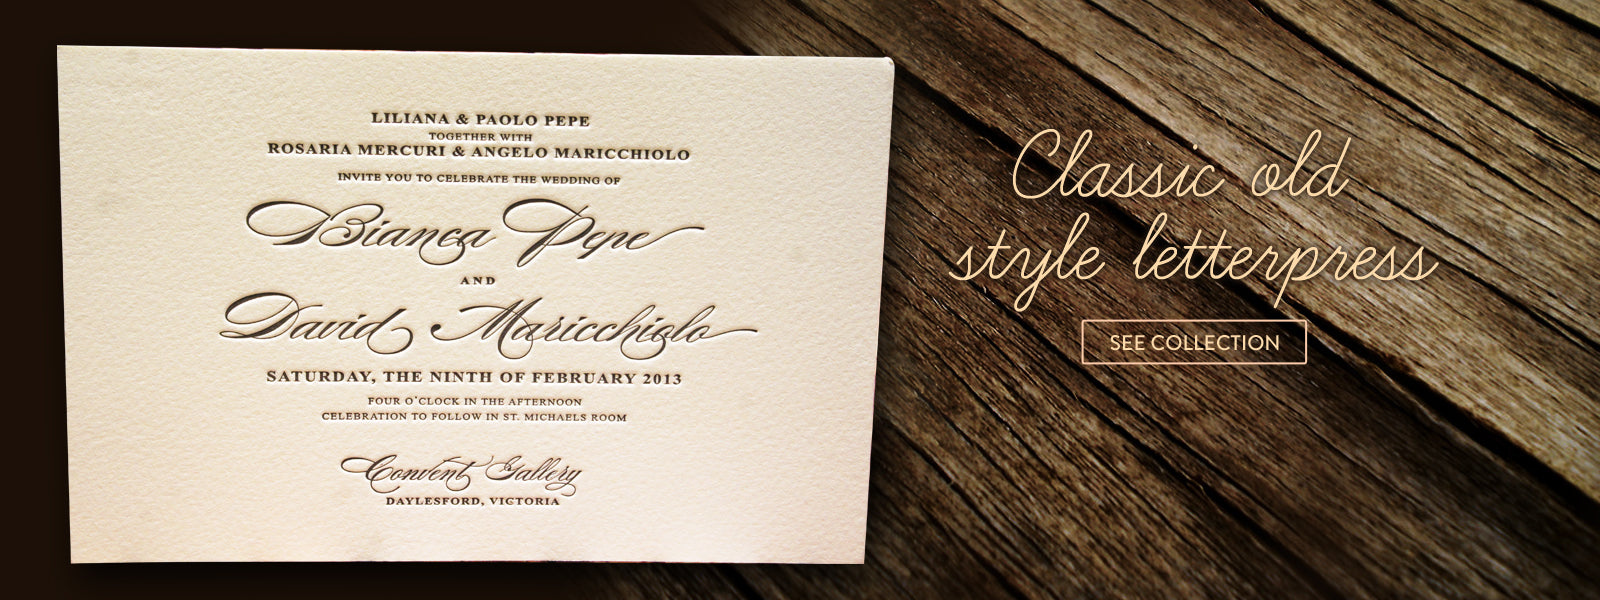 LILIANA & PAOLO PEPE
TOGETHER WITH
ROSARIA MERCURI & ANGELO MARICCHIOLO
INVITE YOU TO CELEBRATE THE WEDDING OF
Bianca Pepe
AND
David Maricchiolo
SATURDAY, THE NINTH OF FEBRUARY 2013
FOUR O'CLOCK IN THE AFTERNOON
CELEBRATION TO FOLLOW IN ST. MICHAELS ROOM
Convent Gallery
DAYLESFORD, VICTORIA
Classic old
style letterpress
SEE COLLECTION